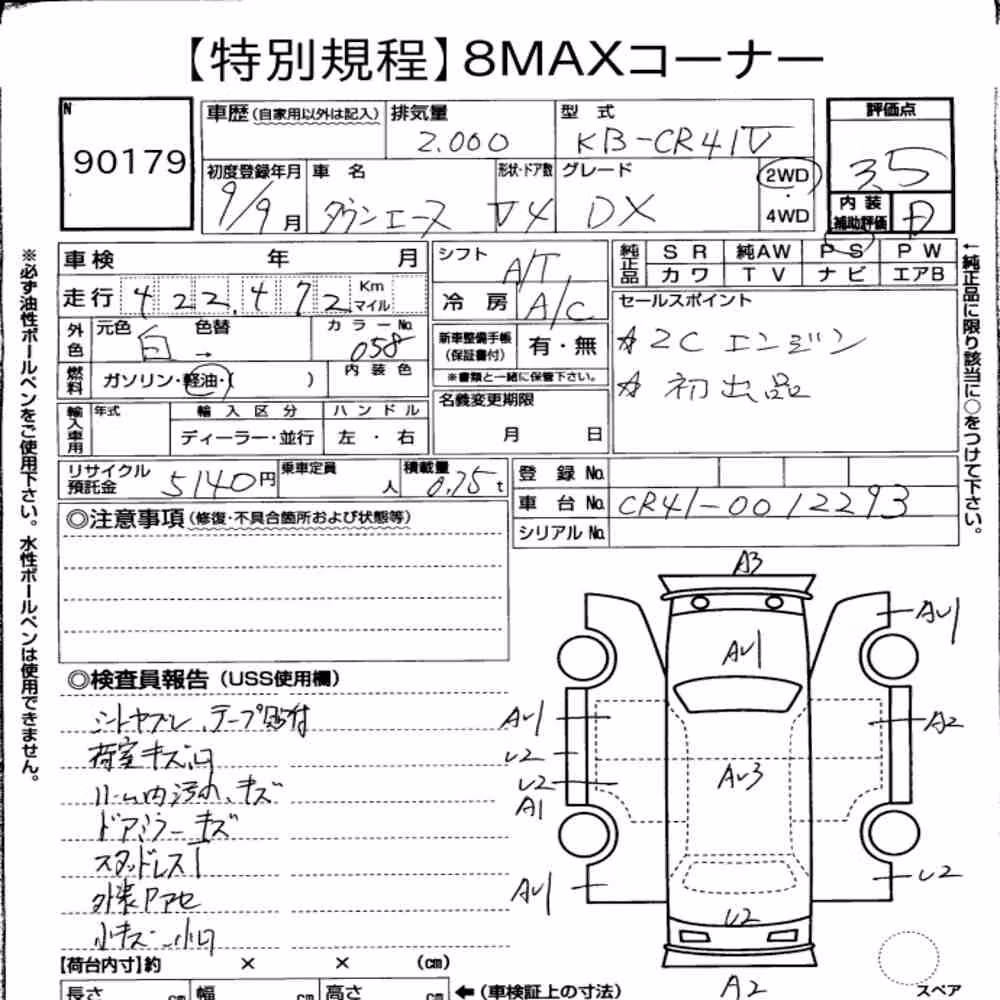 【特別規程】8MAXコーナー
N
90179
車歴(自家用以外は記入)
排気量
2.000
型 式
KB-CR41V
評価点
3.5
初度登録年月
9/9月
車 名
タウンエース
形状・ドア数
V4
グレード
DX
2WD
・
4WD
内 装
補助評価
D
車検 年 月
走行 422,472 Km マイル
シフト
A/T
冷 房
A/C
純正品
SR 純AW PS PW
カワ TV ナビ エアB
外色
元色 白 色替 →
カラーNo.
058
燃料
ガソリン・軽油・( )
内装色
新車整備手帳
(保証書付)
有・無
※書類と一緒に保管下さい。
セールスポイント
☆2Cエンジン
☆初出品
輸入車用
年式
輸入区分
ハンドル
ディーラー・並行
左・右
名義変更期限
月 日
リサイクル
預託金
5140円
乗車定員
人
積載量
0.75t
登録No.
車台No.
CR41-0012293
シリアルNo.
◎注意事項(修復・不具合箇所および状態等)
◎検査員報告(USS使用欄)
シートヤブレ、テープ貼付
荷室キズ凹
ルーム内汚れ、キズ
ドアミラーキズ
スタッドレス
外装Pアセ
小キズ・小凹
【荷台内寸】約 × × (cm)
長さ cm 幅 cm 高さ cm ←(車検証上の寸法)
A3
AU1
AU1
AU1
A2
U2
U2
A1
AU3
AU1
U2
U2
A2
スペア
※必ず油性ボールペンをご使用下さい。水性ボールペンは使用できません。
←純正品に限り該当に○をつけて下さい。